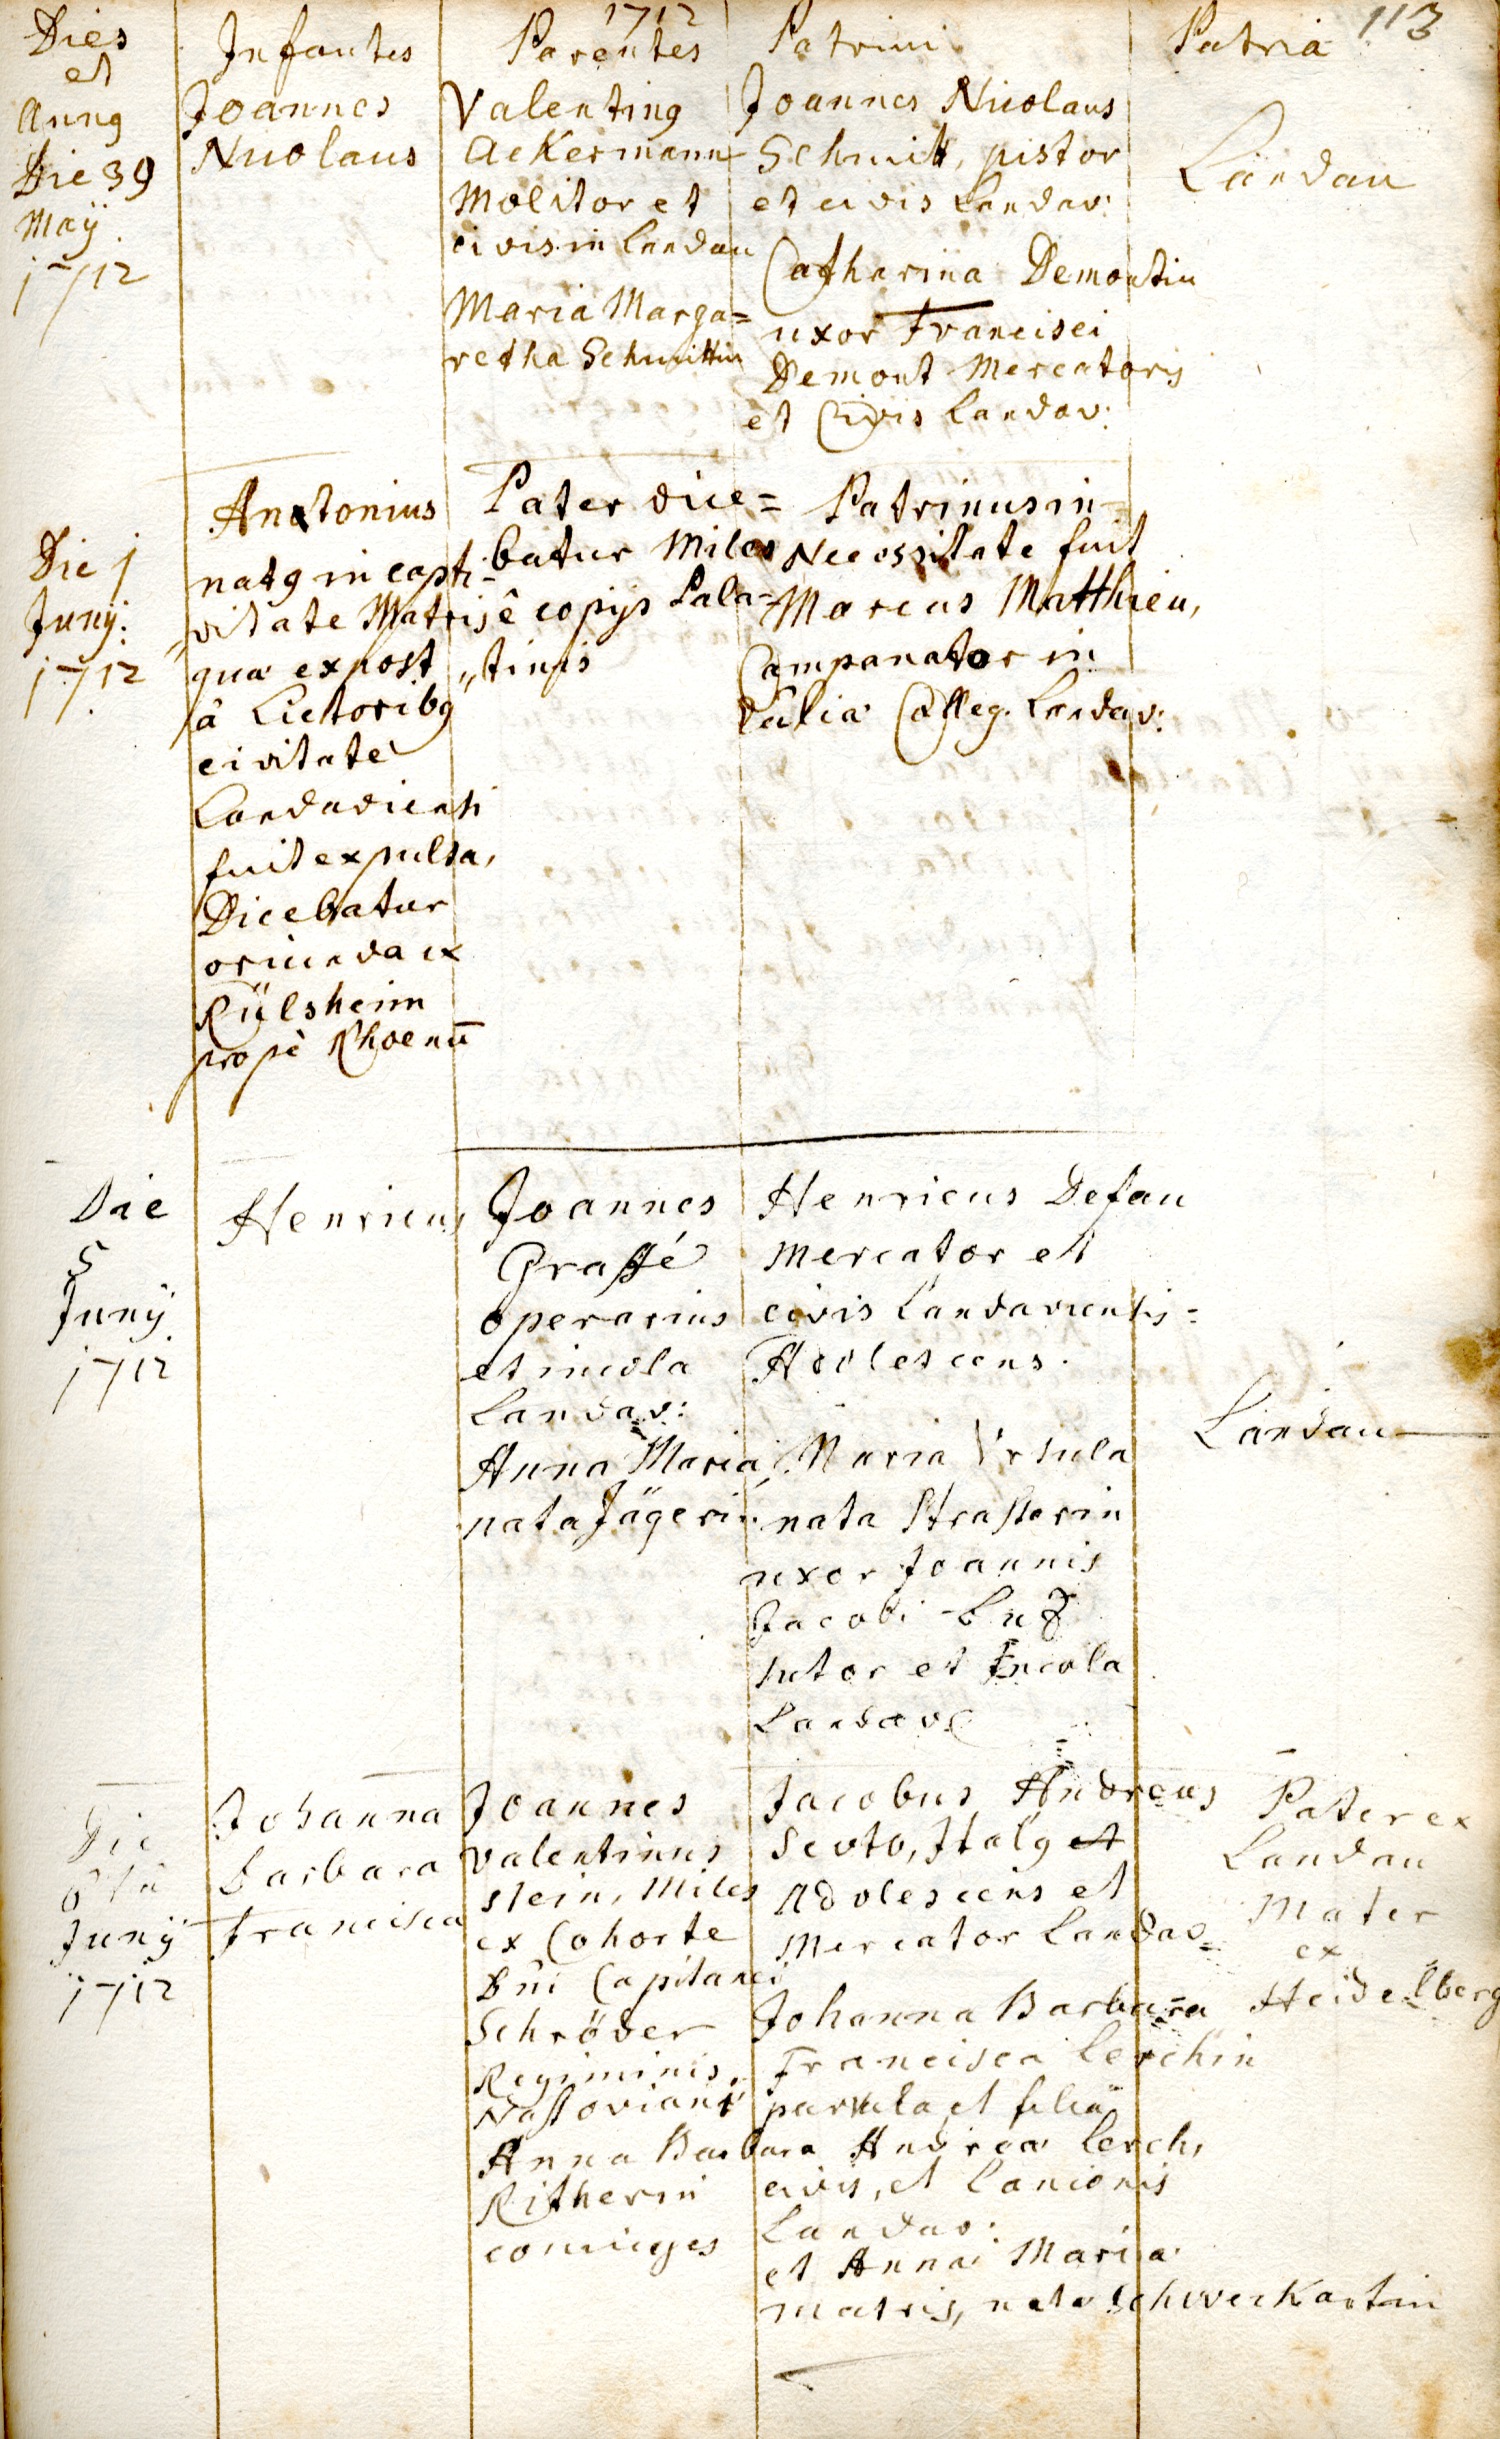 1712
113
Dies
et
Annq
Infantes
Parentes
Patrini
Patria
Die 39
Maÿ
1712
Joannes
Nicolaus
Valentinq
Ackermann
Molitor et
civis in Landau
Maria Marga=
retha Schmittin
Joannes Nicolaus
Schmitt, pistor
et civis Landav:
Catharina Demontin
uxor Francisci
Demont Mercatoris
et Civis Landav:
Landau
Die 1
Junÿ:
1712
Antonius
natq in capti-
vitate Matris
quæ expost
â Lictoribq
civitate
Landaviensi
fuit expulsa,
Dicebatur
oriunda ex
Rülsheim
propè Rhoenū
Pater dice=
batur Miles
ê copÿs Pala=
„tinis
Patrinus in
Necessitate fuit
Marcus Matthieu,
Campanator in
Colleg. Landav:
Die
5
Junÿ
1712
Henricus
Joannes
Graffé
operarius
et incola
Landav:
Anna Maria
nata Jägerin
Henricus Defau
Mercator et
civis Landaviensis=
Adolescens.
Maria Ursula
nata Strasserin
uxor Joannis
Jacobi
sutor et Incola
Landav:
Landau
Die
6tâ
Junÿ
1712
Johanna
Barbara
Francisca
Joannes
Valentinus
Stein, Miles
ex Cohorte
Dñi Capitanei
Schröder
Regiminis
Nassoviani
Anna Barbara
Ritherin
coniuges
Jacobus Andreas
Scoto, Italq et
Adolescens et
Mercator Landav=
Johanna Barbara
Francisca Lerchin
parvula et filia
Andreæ Lerch,
civis, et Lanionis
Landav:
et Annæ Mariæ
matris, nata Schwerkartin
Pater ex
Landau
Mater
ex
Heidelberg